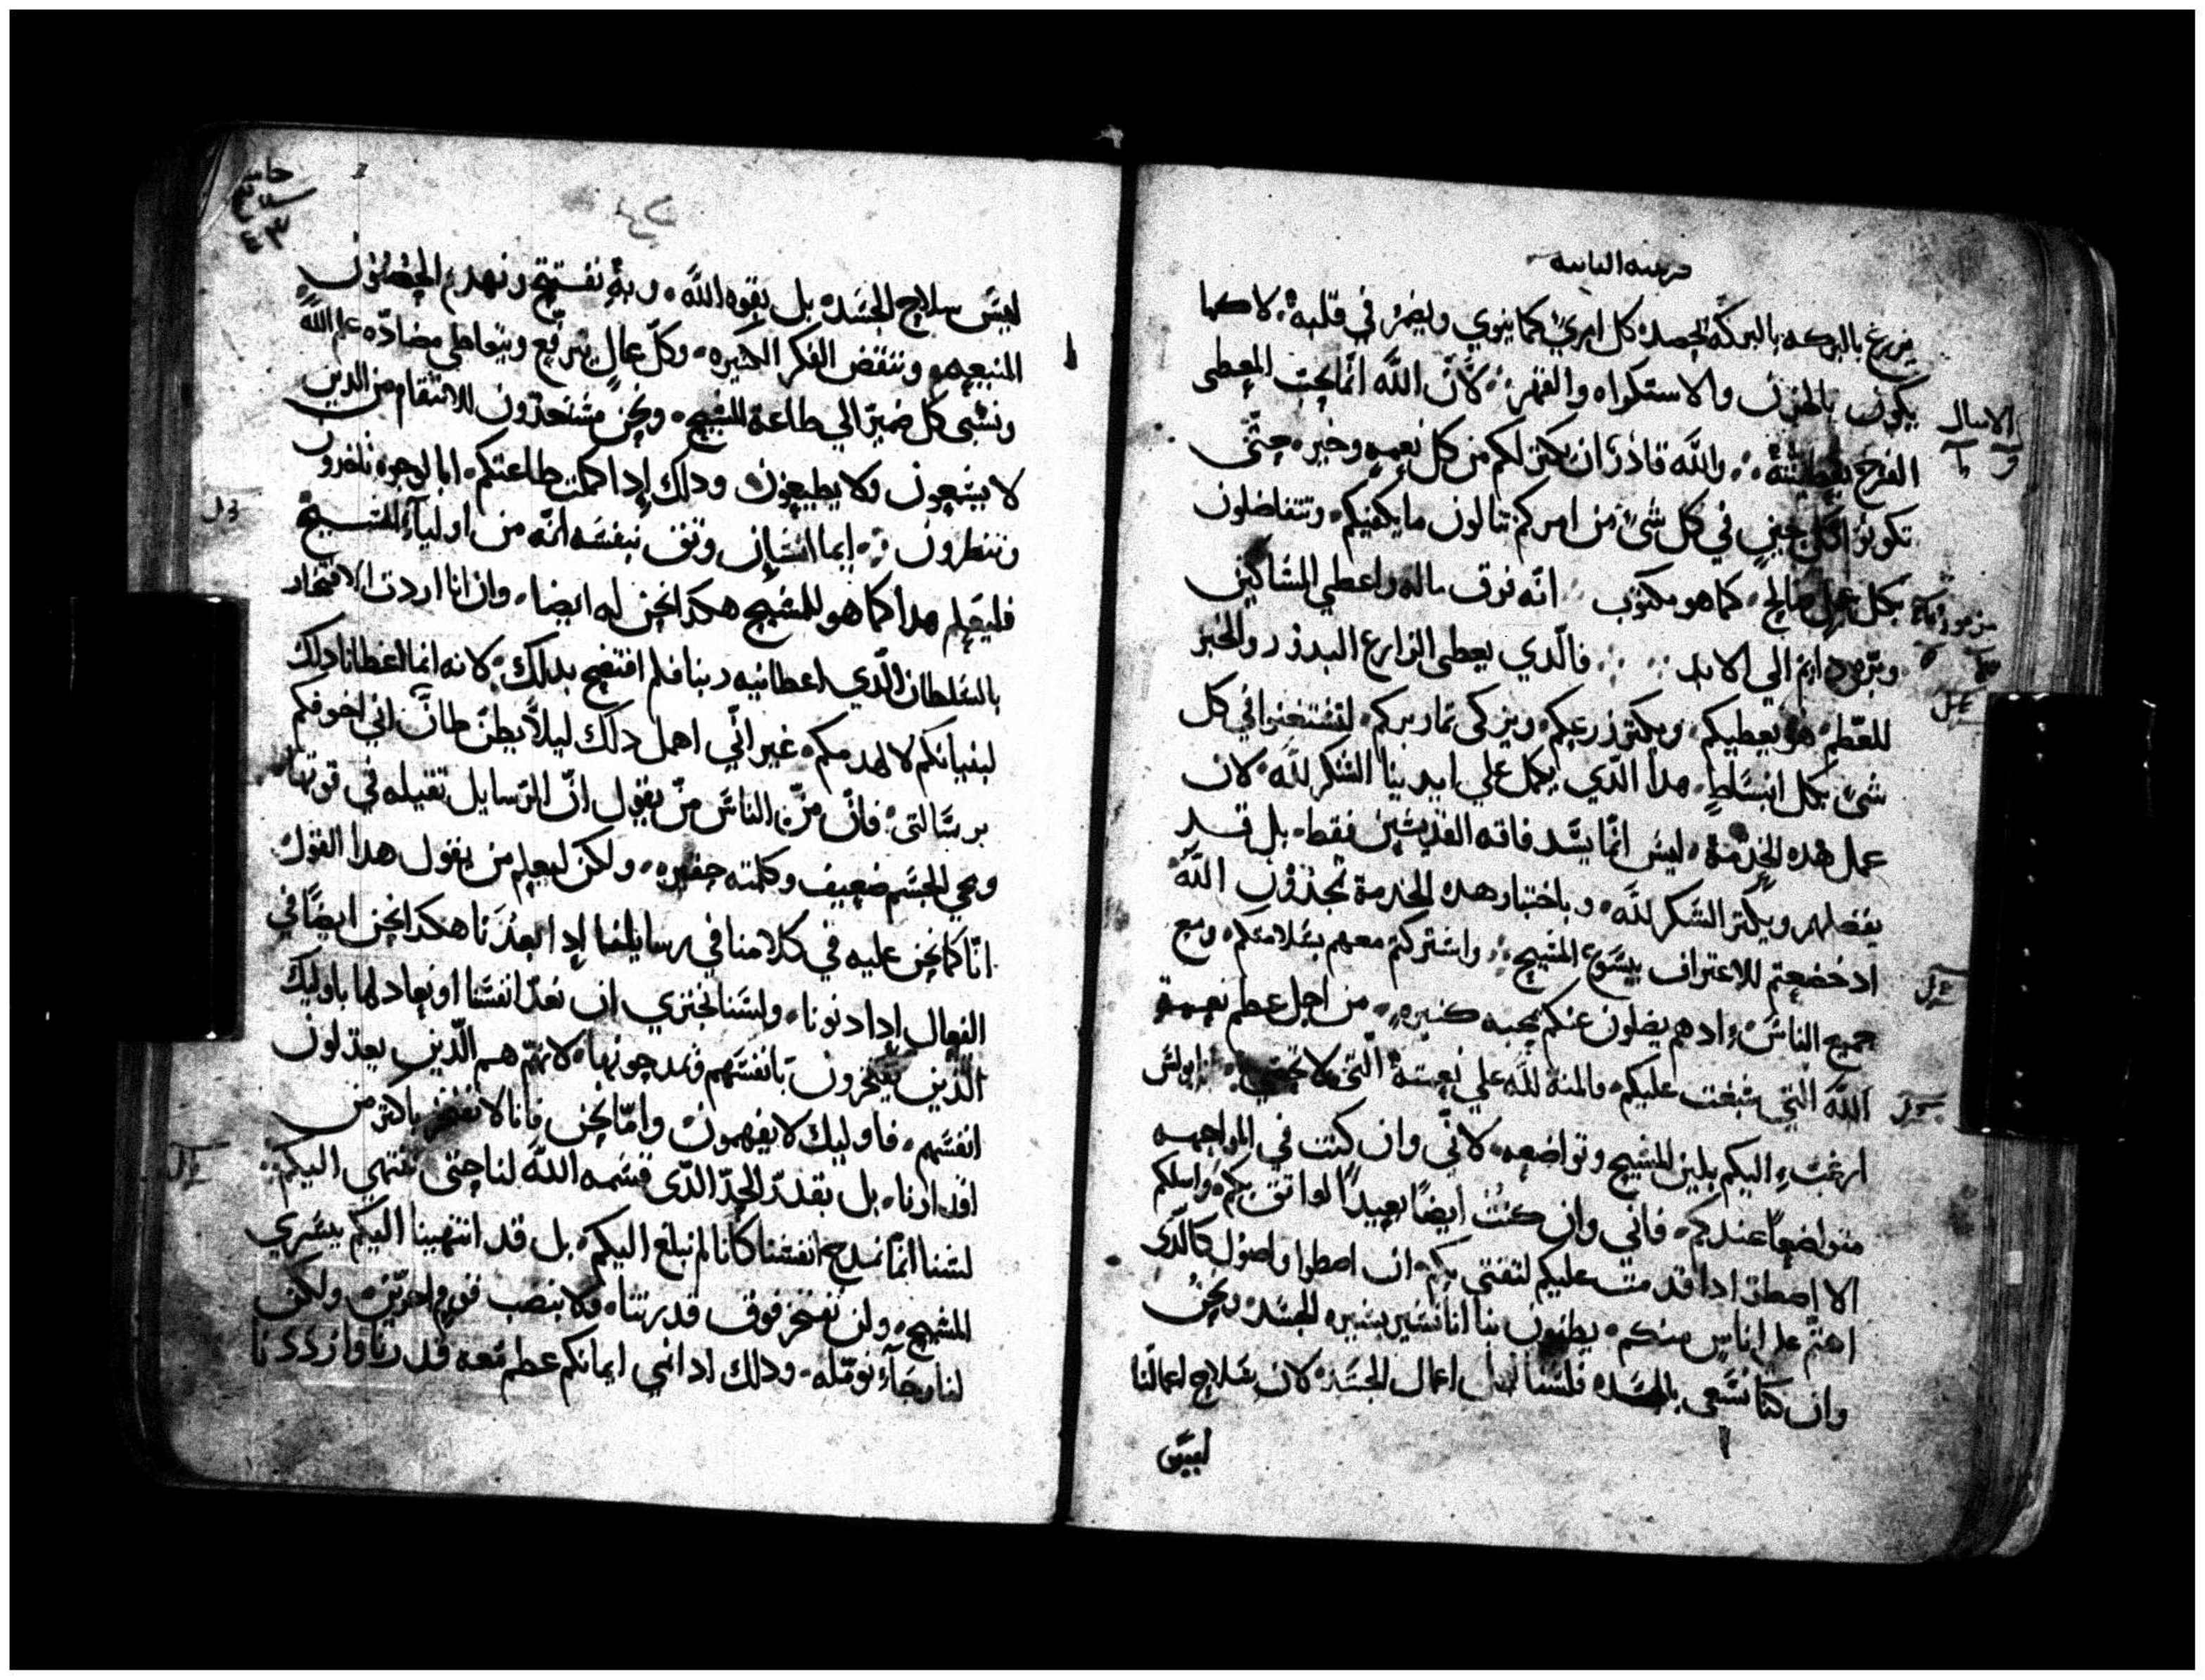 قرنتيه الثانيه
يزرع بالبركه بالبركة يحصد كل امري كما ينوي ويضمر في قلبه لا كما
يكون بالحزن والاستكراه والقهر لان الله انما يحب المعطي
الامثال
الفرح بعطيته والله قادر ان يكثر لكم من كل نعمه وخيره حتى
تكونوا كل حين في كل شئ من امركم تنالون ما يكفيكم وتتفاضلون
بكل عمل صالح كما هو مكتوب انه فرق ماله واعطي المساكين
مزمور
وبره دايم الي الابد فالذي يعطي الزارع البدر والخبز
للطعم هو يعطيكم ويكثر زرعكم ويزكي ثمار بركم لتستغنوا في كل
شئ بكل انبساط هدا الذي يكمل علي ايدينا الشكر لله لان
عمل هده الخدمة ليس انما يسد فاقه القديسين فقط بل قد
يفضل ويكثر الشكر لله وباختبار هده الخدمة تمجدون الله
اد خضعتم للاعتراف بيسوع المسيح واشتركتم معهم بسلامتكم ومع
جميع الناس اد هم يصلون عنكم بمحبه كثيره من اجل عظم نعمة
الله التي سبغت عليكم والمنة لله علي نعمته التي لا تحصي بولس
ارغب اليكم بلين المسيح وتواضعه لاني وان كنت في المواجهه
متواضعا عندكم فاني وان كنت ايضا بعيدا لواثق بكم واسلكم
الا اضطر ادا قدمت عليكم لثقتي بكم ان اسطوا واصول كالذي
اهتم علي اناس منكم يظنون بنا انا نسير بسيره الجسد ونحن
وان كنا نسعي بالجسد فلسنا اعمال الجسد لان سلاح اعمالنا
ليس
ليس سلاح الجسد بل بقوه الله وبه نفتتح ونهدم الحصون
المنيعه وننقض الفكر الكثيره وكل عال يرتفع ويتعاطي مضاده علم الله
ونسبي كل ضمير الي طاعة المسيح ونحن مستعدون للانتقام من الدين
لا يسمعون ولا يطيعون ودلك إدا كملت طاعتكم اما الوجوه تاخدون
وتنظرون إيما انسان وثق بنفسه انه من اوليآء المسيح
فليعلم هدا كما هو للمسيح هكدا نحن له ايضا وان انا اردت الافتخار
بالسلطان الدي اعطانيه ربنا فلم افتضح بدلك لانه انما اعطانا دلك
لبنيانكم لا لهدمكم غير اني اهمل دلك ليلا يظن ظان اني اخوفكم
برسالتي فان من الناس من يقول ان الرسايل تقيله في قوتها
ومجي الجسم ضعيف وكلمته حقيره ولكن ليعلم من يقول هدا القول
انا كما نحن عليه في كلامنا في رسايلنا إدا بعدنا هكدا نحن ايضا في
الفعال إدا دنونا ولسنا نجتري ان نعد انفسنا او نعادلها باوليك
الدين يفتخرون بانفسهم ويمدحونها لانهم هم الدين يعدلون
انفسهم فاوليك لا يفهمون واما نحن فانا لا نفتخر باكثر من
اقدارنا بل بقدر الحد الدي قسمه الله لنا حتي ننتهي اليكم
لسنا انما نمدح انفسنا كانا لم نبلغ اليكم بل قد انتهينا اليكم ببشري
المسيح ولن نفتخر فوق قدرتنا ولا بنصب قوم اخرين ولكن
لنا رجآء نومله ودلك ادا نمي ايمانكم عظم معه قدرنا وازددنا